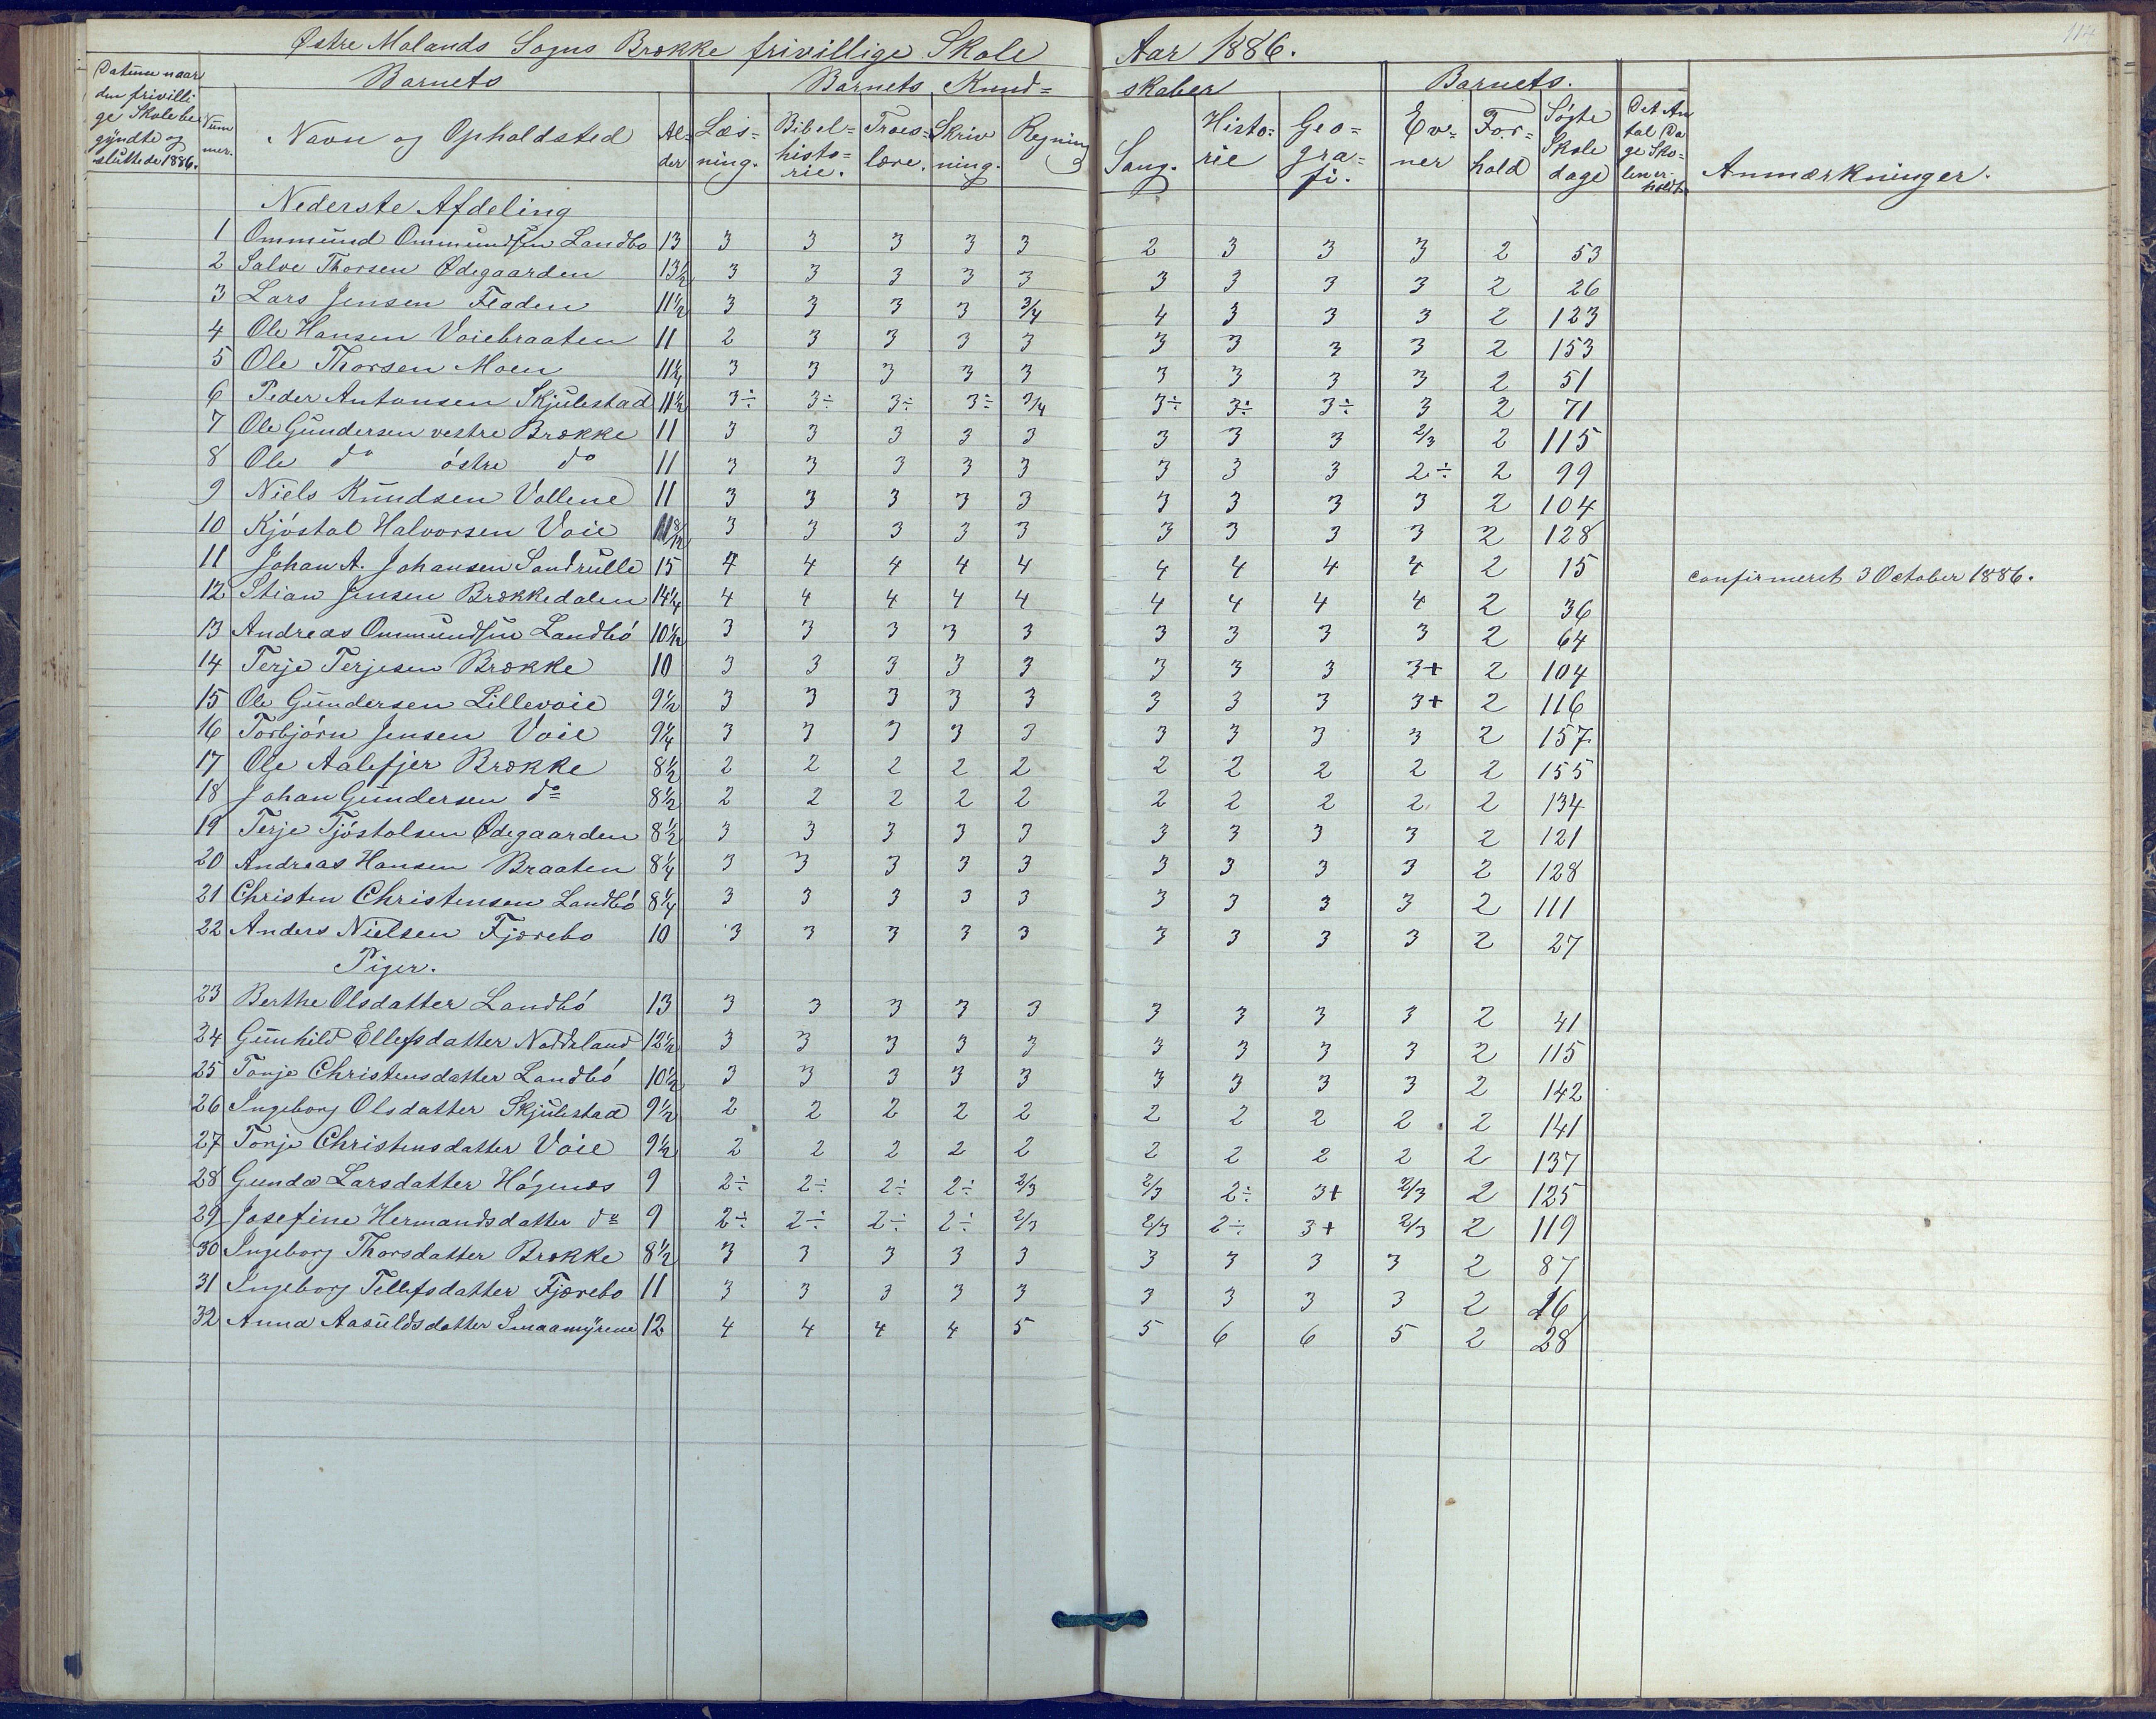 114
Østre Molands Sogns Brække frivillige Skole Aar 1886.
Datum naar den frivillige Skole begyndte og sluttede 1886. Nummer. Barnets Navn og Opholdsted Alder Barnets Kundskaber Læsning. Bibelhistorie. Troeslære. Skrivning. Regning Sang. Historie Geografi. Barnets. Evner Forhold Søgte Skoledage Det Antal Dage Skolen er holdt Anmærkninger.
Nederste Afdeling
1 Ommund Ommundsen Landbø 13 3 3 3 3 3 2 3 3 3 2 53
2 Salve Thorsen Ødegaarden 13 1/2 3 3 3 3 3 3 3 3 3 2 26
3 Lars Jensen Fladen 11 1/2 3 3 3 3 3/4 4 3 3 3 2 123
4 Ole Hansen Voiebraaten 11 2 3 3 3 3 3 3 3 3 2 153
5 Ole Thorsen Moen 11 1/4 3 3 3 3 3 3 3 3 3 2 51
6 Peder Antonsen Skjulestad 11 1/2 3÷ 3÷ 3÷ 3÷ 3/4 3÷ 3÷ 3÷ 3 2 71
7 Ole Gundersen vestre Brække 11 3 3 3 3 3 3 3 3 2/3 2 115
8 Ole do østre do 11 3 3 3 3 3 3 3 3 2÷ 2 99
9 Niels Knudsen Vollene 11 3 3 3 3 3 3 3 3 3 2 104
10 Kjøstol Halvorsen Voie 11 8/12 3 3 3 3 3 3 3 3 3 2 128
11 Johan A. Johansen Sandrulle 15 4 4 4 4 4 4 4 4 4 2 15 confirmeret 3 October 1886.
12 Stian Jensen Brækkedalen 14 1/4 4 4 4 4 4 4 4 4 4 2 36
13 Andreas Ommundsen Landbø 10 1/2 3 3 3 3 3 3 3 3 3 2 64
14 Terje Terjesen Brække 10 3 3 3 3 3 3 3 3 3+ 2 104
15 Ole Gundersen Lillevoie 9 1/2 3 3 3 3 3 3 3 3 3+ 2 116
16 Torbjørn Jensen Voie 9 1/4 3 3 3 3 3 3 3 3 3 2 157
17 Ole Aalefjer Brække 8 1/2 2 2 2 2 2 2 2 2 2 2 155
18 Johan Gundersen do 8 1/2 2 2 2 2 2 2 2 2 2 2 134
19 Terje Tjøstolsen Ødegaarden 8 1/2 3 3 3 3 3 3 3 3 3 2 121
20 Andreas Hansen Braaten 8 1/4 3 3 3 3 3 3 3 3 3 2 128
21 Christen Christensen Landbø 8 1/4 3 3 3 3 3 3 3 3 3 2 111
22 Anders Nielsen Fjærebo 10 3 3 3 3 3 3 3 3 3 2 27
Piger.
23 Berthe Olsdatter Landbø 13 3 3 3 3 3 3 3 3 3 2 41
24 Gunhild Ellefsdatter Noddeland 12 1/2 3 3 3 3 3 3 3 3 3 2 115
25 Tonje Christensdatter Landbø 10 1/2 3 3 3 3 3 3 3 3 3 2 142
26 Ingeborg Olsdatter Skjulestad 9 1/2 2 2 2 2 2 2 2 2 2 2 141
27 Tonje Christensdatter Voie 9 1/2 2 2 2 2 2 2 2 2 2 2 137
28 Gunda Larsdatter Høgenæs 9 2÷ 2÷ 2÷ 2÷ 2/3 2/3 2÷ 3+ 2/3 2 125
29 Josefine Hermandsdatter do 9 2÷ 2÷ 2÷ 2÷ 2/3 2/3 2÷ 3+ 2/3 2 119
30 Ingeborg Thorsdatter Brække 8 1/2 3 3 3 3 3 3 3 3 3 2 87
31 Ingeborg Tellefsdatter Fjærebo 11 3 3 3 3 3 3 3 3 3 2 16
32 Anna Aasuldsdatter Smaamyrene 12 4 4 4 4 5 5 6 6 5 2 28